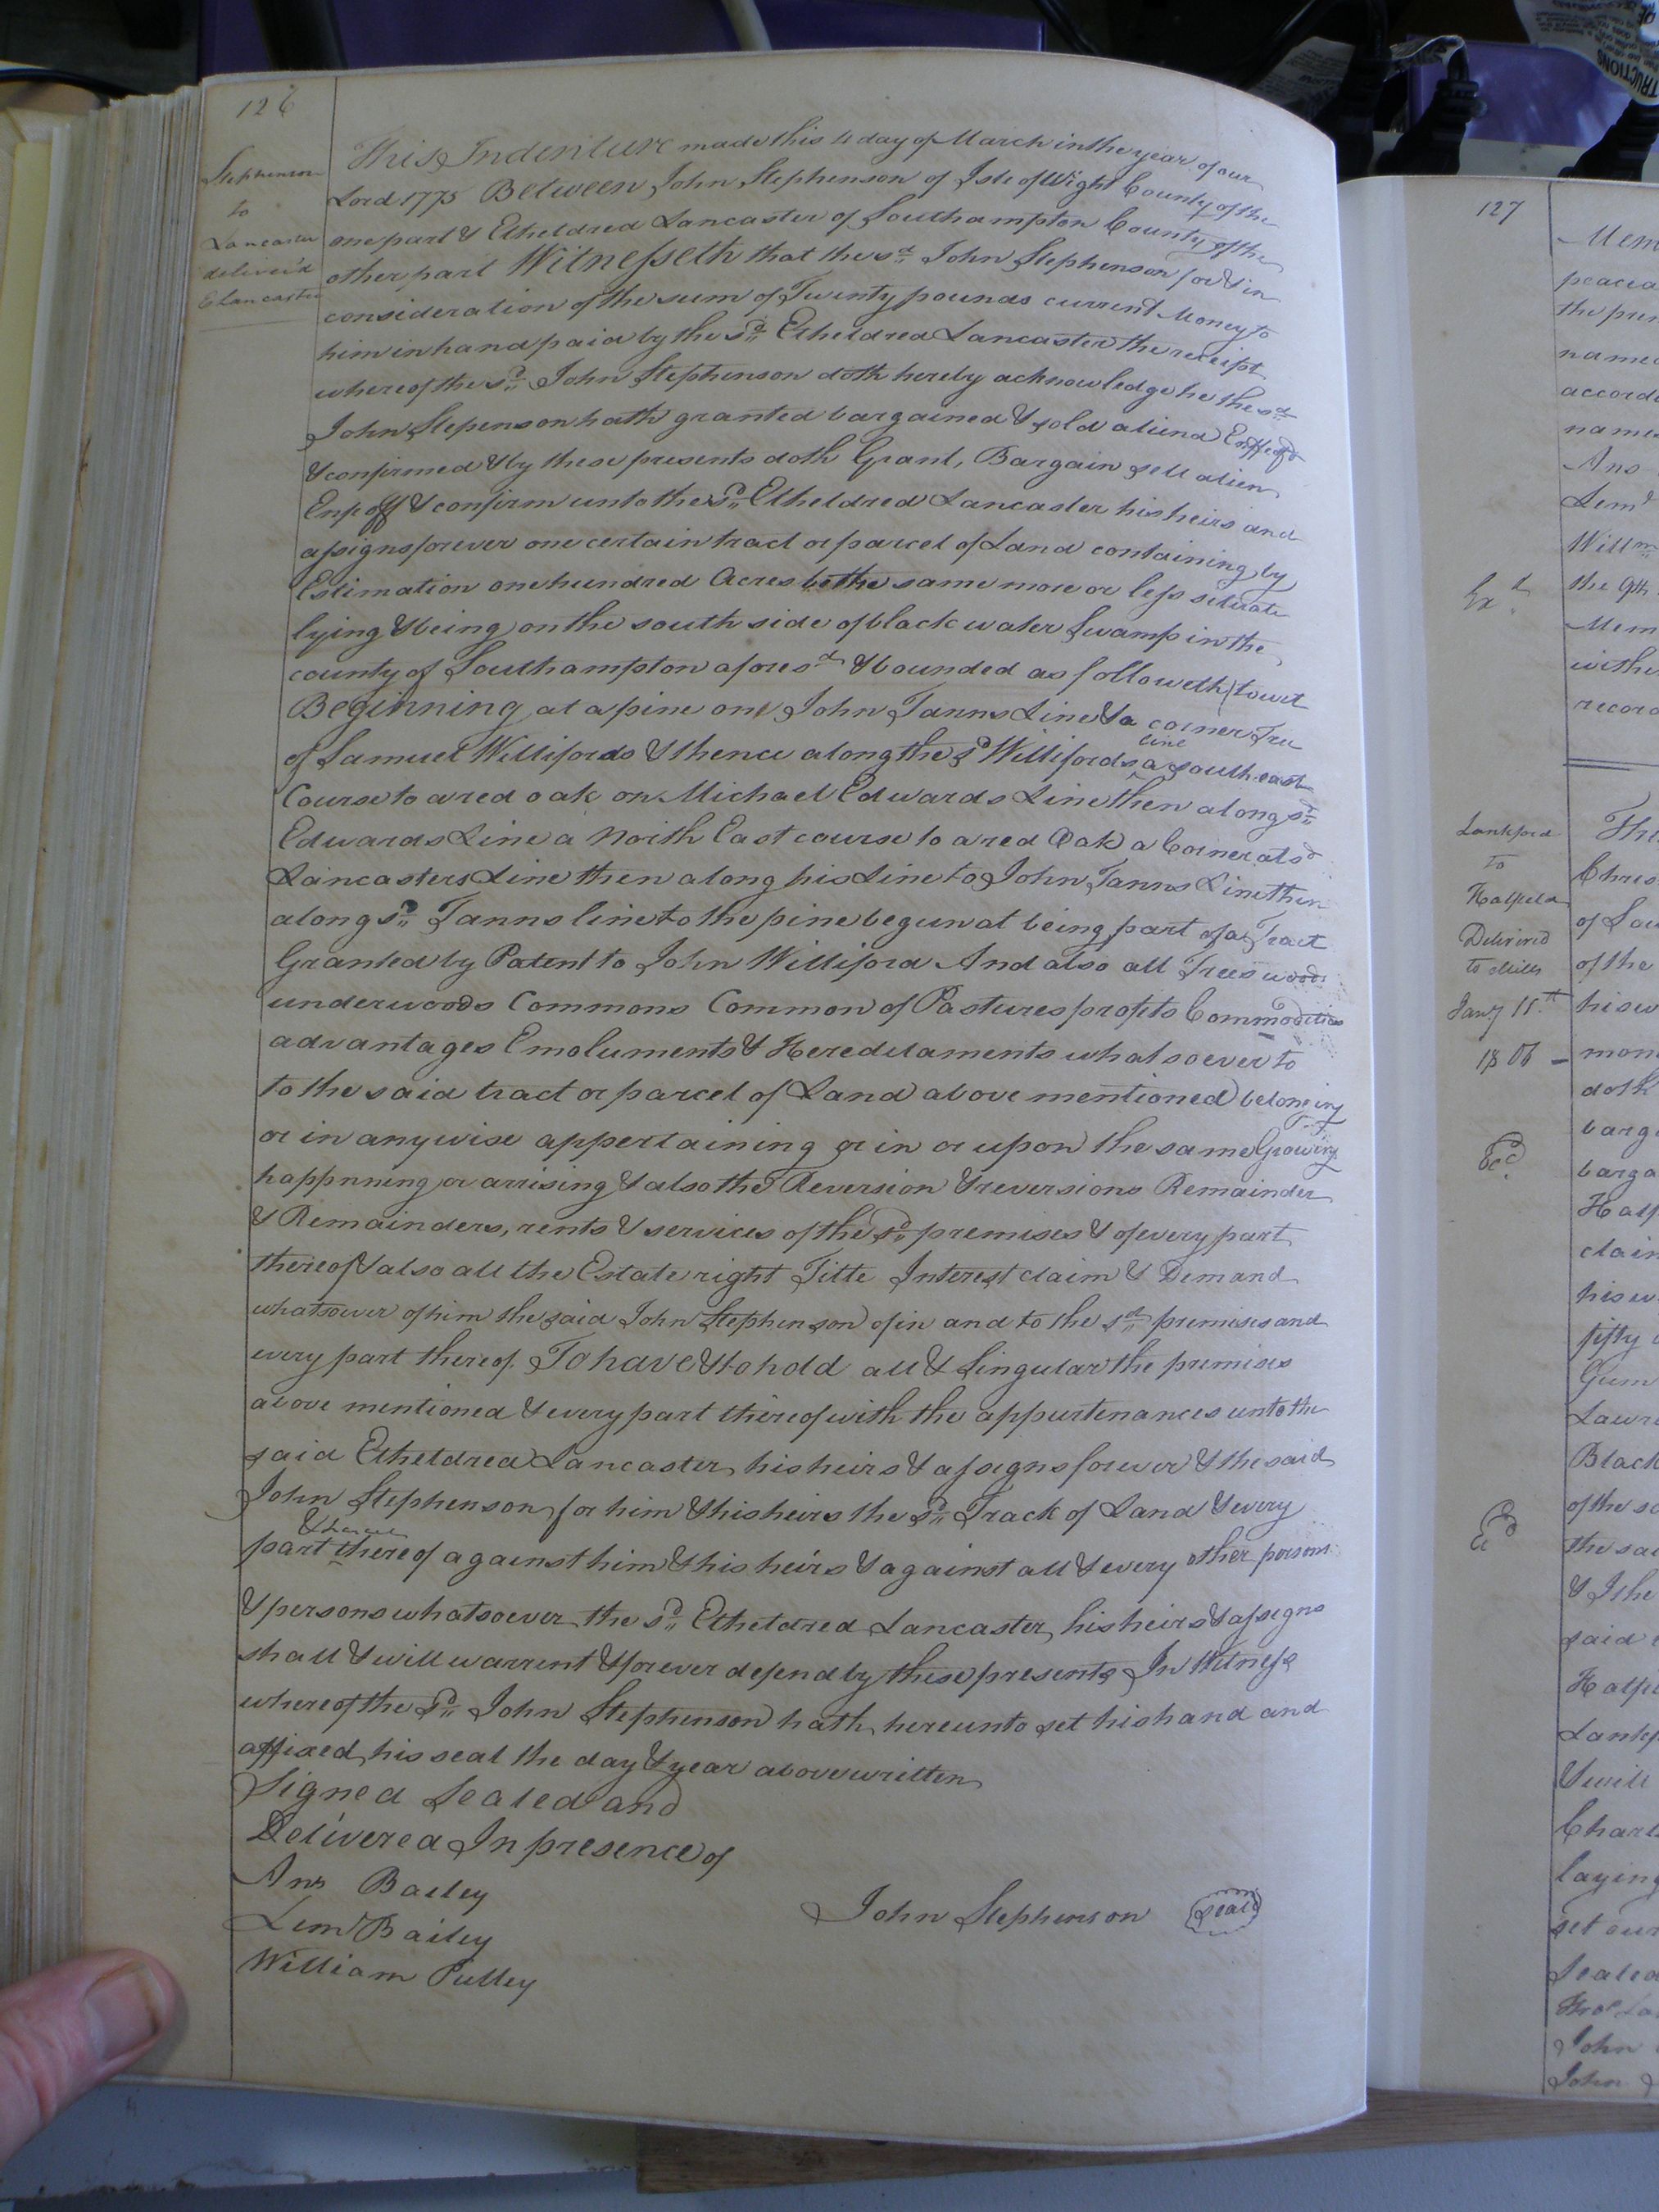 126
Stephenson
to
Lancaster
deliver'd
E Lancaster
This Indenture made this 4 day of March in the year of our
Lord 1775 Between John Stephenson of Isle of Wight County of the
one part & Etheldred Lancaster of Southampton County of the
other part Witnesseth that the sd John Stephenson for & in
consideration of the sum of Twenty pounds current Money to
him in hand paid by the sd Etheldred Lancaster the receipt
whereof the sd John Stephenson doth hereby acknowledge he the sd
John Stepenson hath granted bargained & sold aliend Enffeofd
& confirmed & by these presents doth Grant, Bargain sell alien
Enfeoff & confirm unto the sd Etheldred Lancaster his heirs and
assigns forever one certain tract or parcel of Land containing by
Estimation one hundred Acres be the same more or less situate
lying & being on the south side of black water Swamp in the
county of Southampton afores'd & bounded as followeth (to wit
Beginning at a pine on John Tanns Line & a corner Tree
of Samuel Willifords & thence along the sd Willifords line a south east
Course to a red oak on Michael Edwards Line then along sd
Edwards Line a North East course to a red Oak a Corner at sd
Lancasters Line then along his Line to John Tanns Line then
along sd Tanns line to the pine begun at being part of a Tract
Granted by Patent to John Williford And also all Trees woods
underwoods Commons Common of Pastures profits Commodities
advantages Emoluments & Hereditaments whatsoever to
to the said tract or parcel of Land above mentioned belonging
or in anywise appertaining or in or upon the same Growing
happnning or arrising & also the Reversion & reversions Remainder
& Remainders, rents & services of the sd premises & of every part
thereof & also all the Estate right Title Interest claim & Demand
whatsoever of him the said John Stephenson of in and to the sd premises and
every part thereof. To have & to hold all & Singular the premises
above mentioned & every part thereof with the appurtenances unto the
said Etheldred Lancaster his heirs & assigns forever & the said
John Stephenson for him & his heirs the sd Track of Land & every
part thereof against him & his heirs & against all & every other person
& persons whatsoever the sd Etheldred Lancaster, his heirs & assigns
shall & will warrent & forever defend by these presents In Witness
whereof the sd John Stephenson hath hereunto set his hand and
affixed his seal the day & year above written
Signed Sealed and
Delivered In presence of
Ans Bailey
Lem Bailey
William Pulley
John Stephenson seal
127
Mem
peacea
the pre
named
accord
name
Ans
Lemd
Willm
the 9th
Mem
withe
record
Lankford
to
Halfeld
Delivered
to Mills
Jany 11th
1806
The
Chris
of Sou
of the
his w
mon
doth
barg
barga
Half
clain
his w
fifty
Gum
Lawr
Black
of the sa
the sai
& I the
said
Halfe
Lankf
& will
Charl
laying
set our
Sealed
John
John